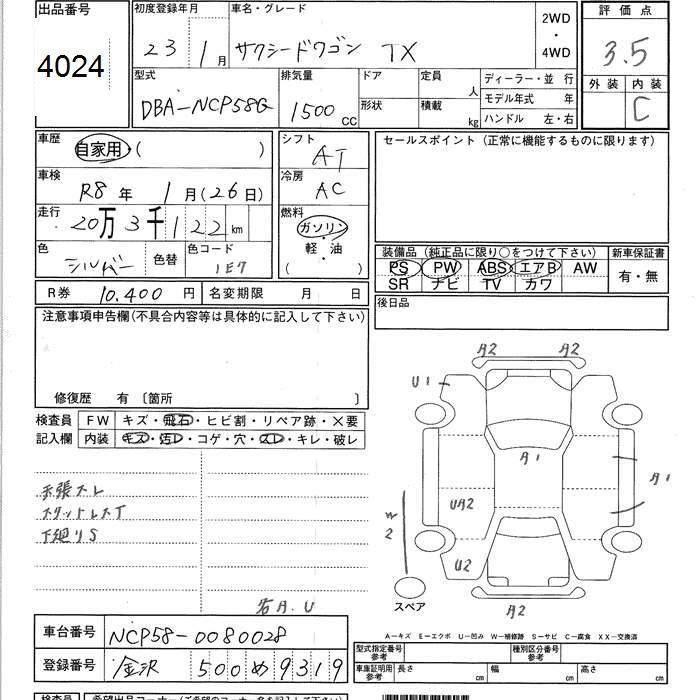 出品番号 初度登録年月 車名・グレード 2WD 評価点
4024 23 1月 サクシードワゴン TX ・ 4WD 3.5
型式 排気量 ドア 定員 人 ディーラー・並 行 外装 内装
DBA-NCP58G 1500 CC 形状 積載 kg モデル年式 年 C
ハンドル 左・右
車歴 自家用・( ) シフト AT セールスポイント (正常に機能するものに限ります)
車検 R8年 1月(26日) 冷房 AC
走行 20万3千122km 燃料 ガソリン
・
軽・油
( )
色 シルバー 色替 色コード 1E7
装備品 (純正品に限り○をつけて下さい) 新車保証書
PS PW ABS エアB AW 有・無
SR ナビ TV カワ
R券 10,400円 名変期限 月 日 後日品
注意事項申告欄(不具合内容等は具体的に記入して下さい)
修復歴 有 〔箇所 〕
検査員 FW キズ・飛石・ヒビ割・リペア跡・×要
記入欄 内装 キズ・汚レ・コゲ・穴・スレ・キレ・破レ
天張スレ
スタットレスT
下廻りS
A2 A2
U1
A1
A1
UA2
W2
U2
スペア
A2
A-キズ E-エクボ U-凹み W-補修跡 S-サビ C-腐食 XX-交換済
車台番号 NCP58-0080028
登録番号 金沢 500 め 9319
型式指定番号 参考 種別区分番号 参考
車庫証明用 参考 長さ cm 幅 cm 高さ cm
検査員 希望出品コーナー(ご希望のコーナー名を記入して下さい)